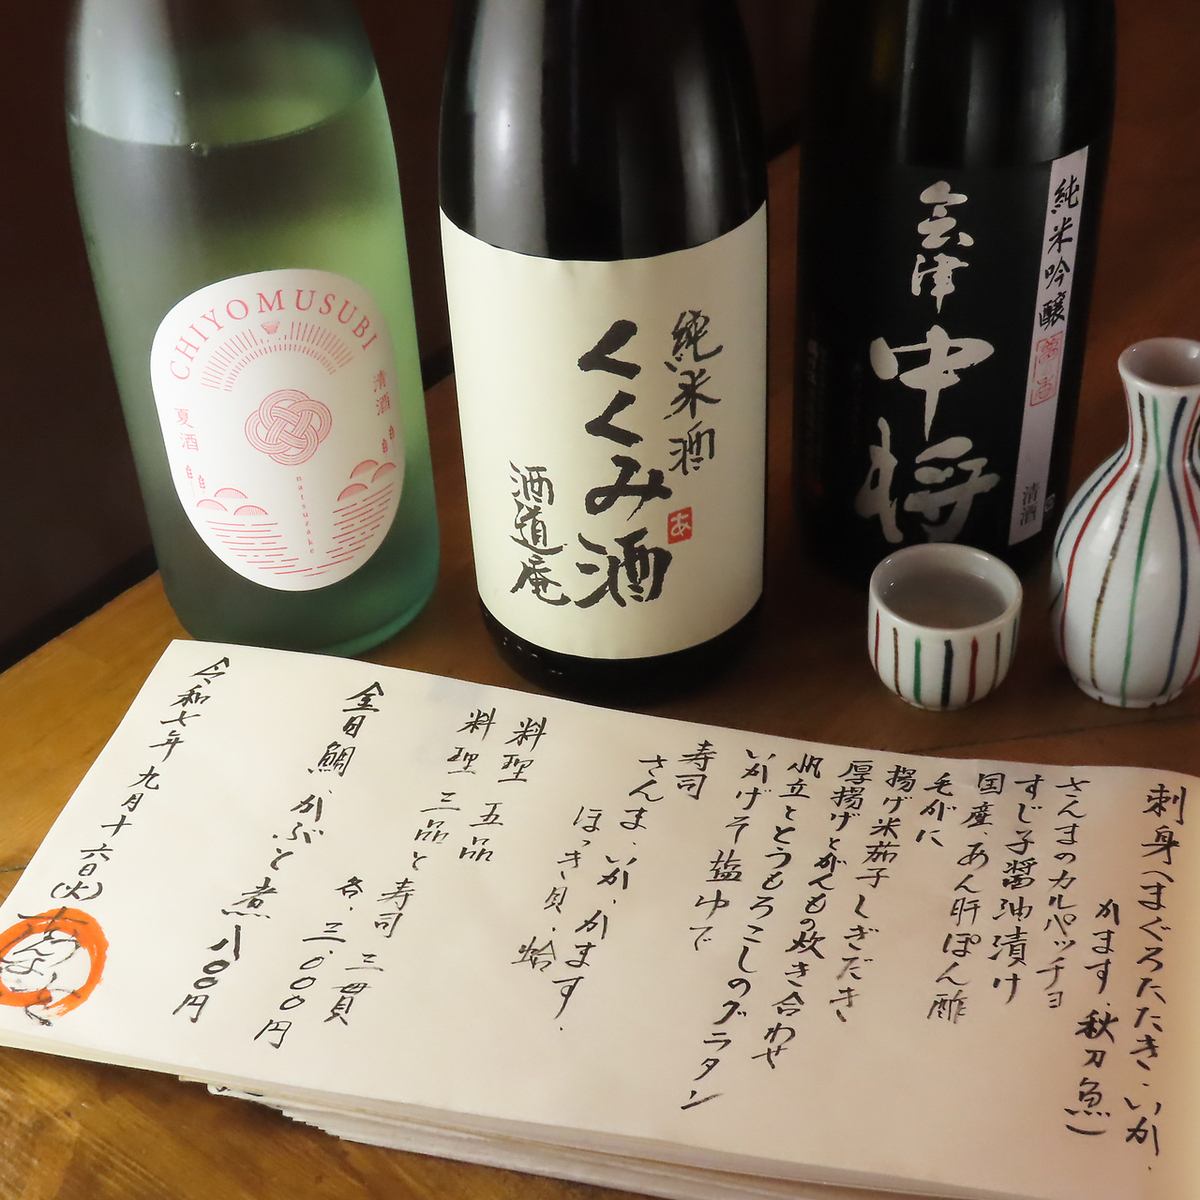 CHIYOMUSUBI
清酒
夏酒
natsuzake
純米酒
くくみ酒
あ
酒道庵
純米吟醸
清酒
会津
中将
刺身(まぐろたたき、いか、
かます、秋刀魚)
さんまのカルパッチョ
すじ子醤油漬け
国産、あん肝ぽん酢
毛がに
揚げ米茄子しぎだき
厚揚げとがんもの炊き合わせ
帆立ととうもろこしのグラタン
いかげそ塩ゆで
寿司
さんま、いか、かます、
ほっき貝、蛤
料理 五品
料理 三品と寿司 三貫
各、三、〇〇〇円
金目鯛、かぶと煮 八〇〇円
令和七年九月十六日(火)